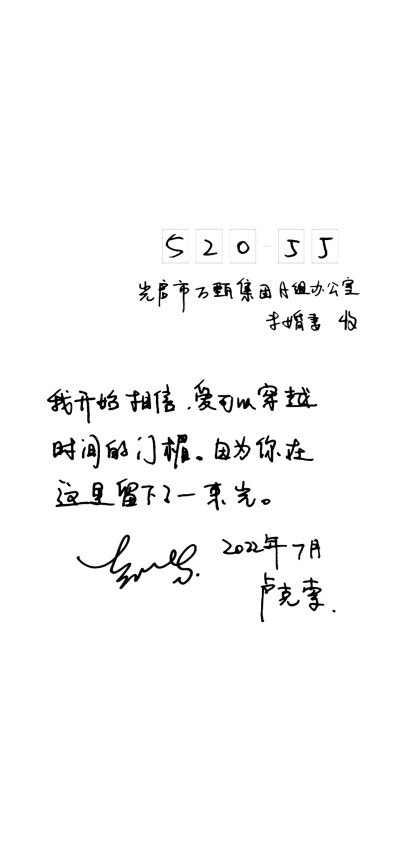 520-55
光启市万甄集团A组办公室
未婚妻 收
我开始相信,爱可以穿越
时间的门楣。因为你在
这里留下了一束光。
2022年7月
卢克李.